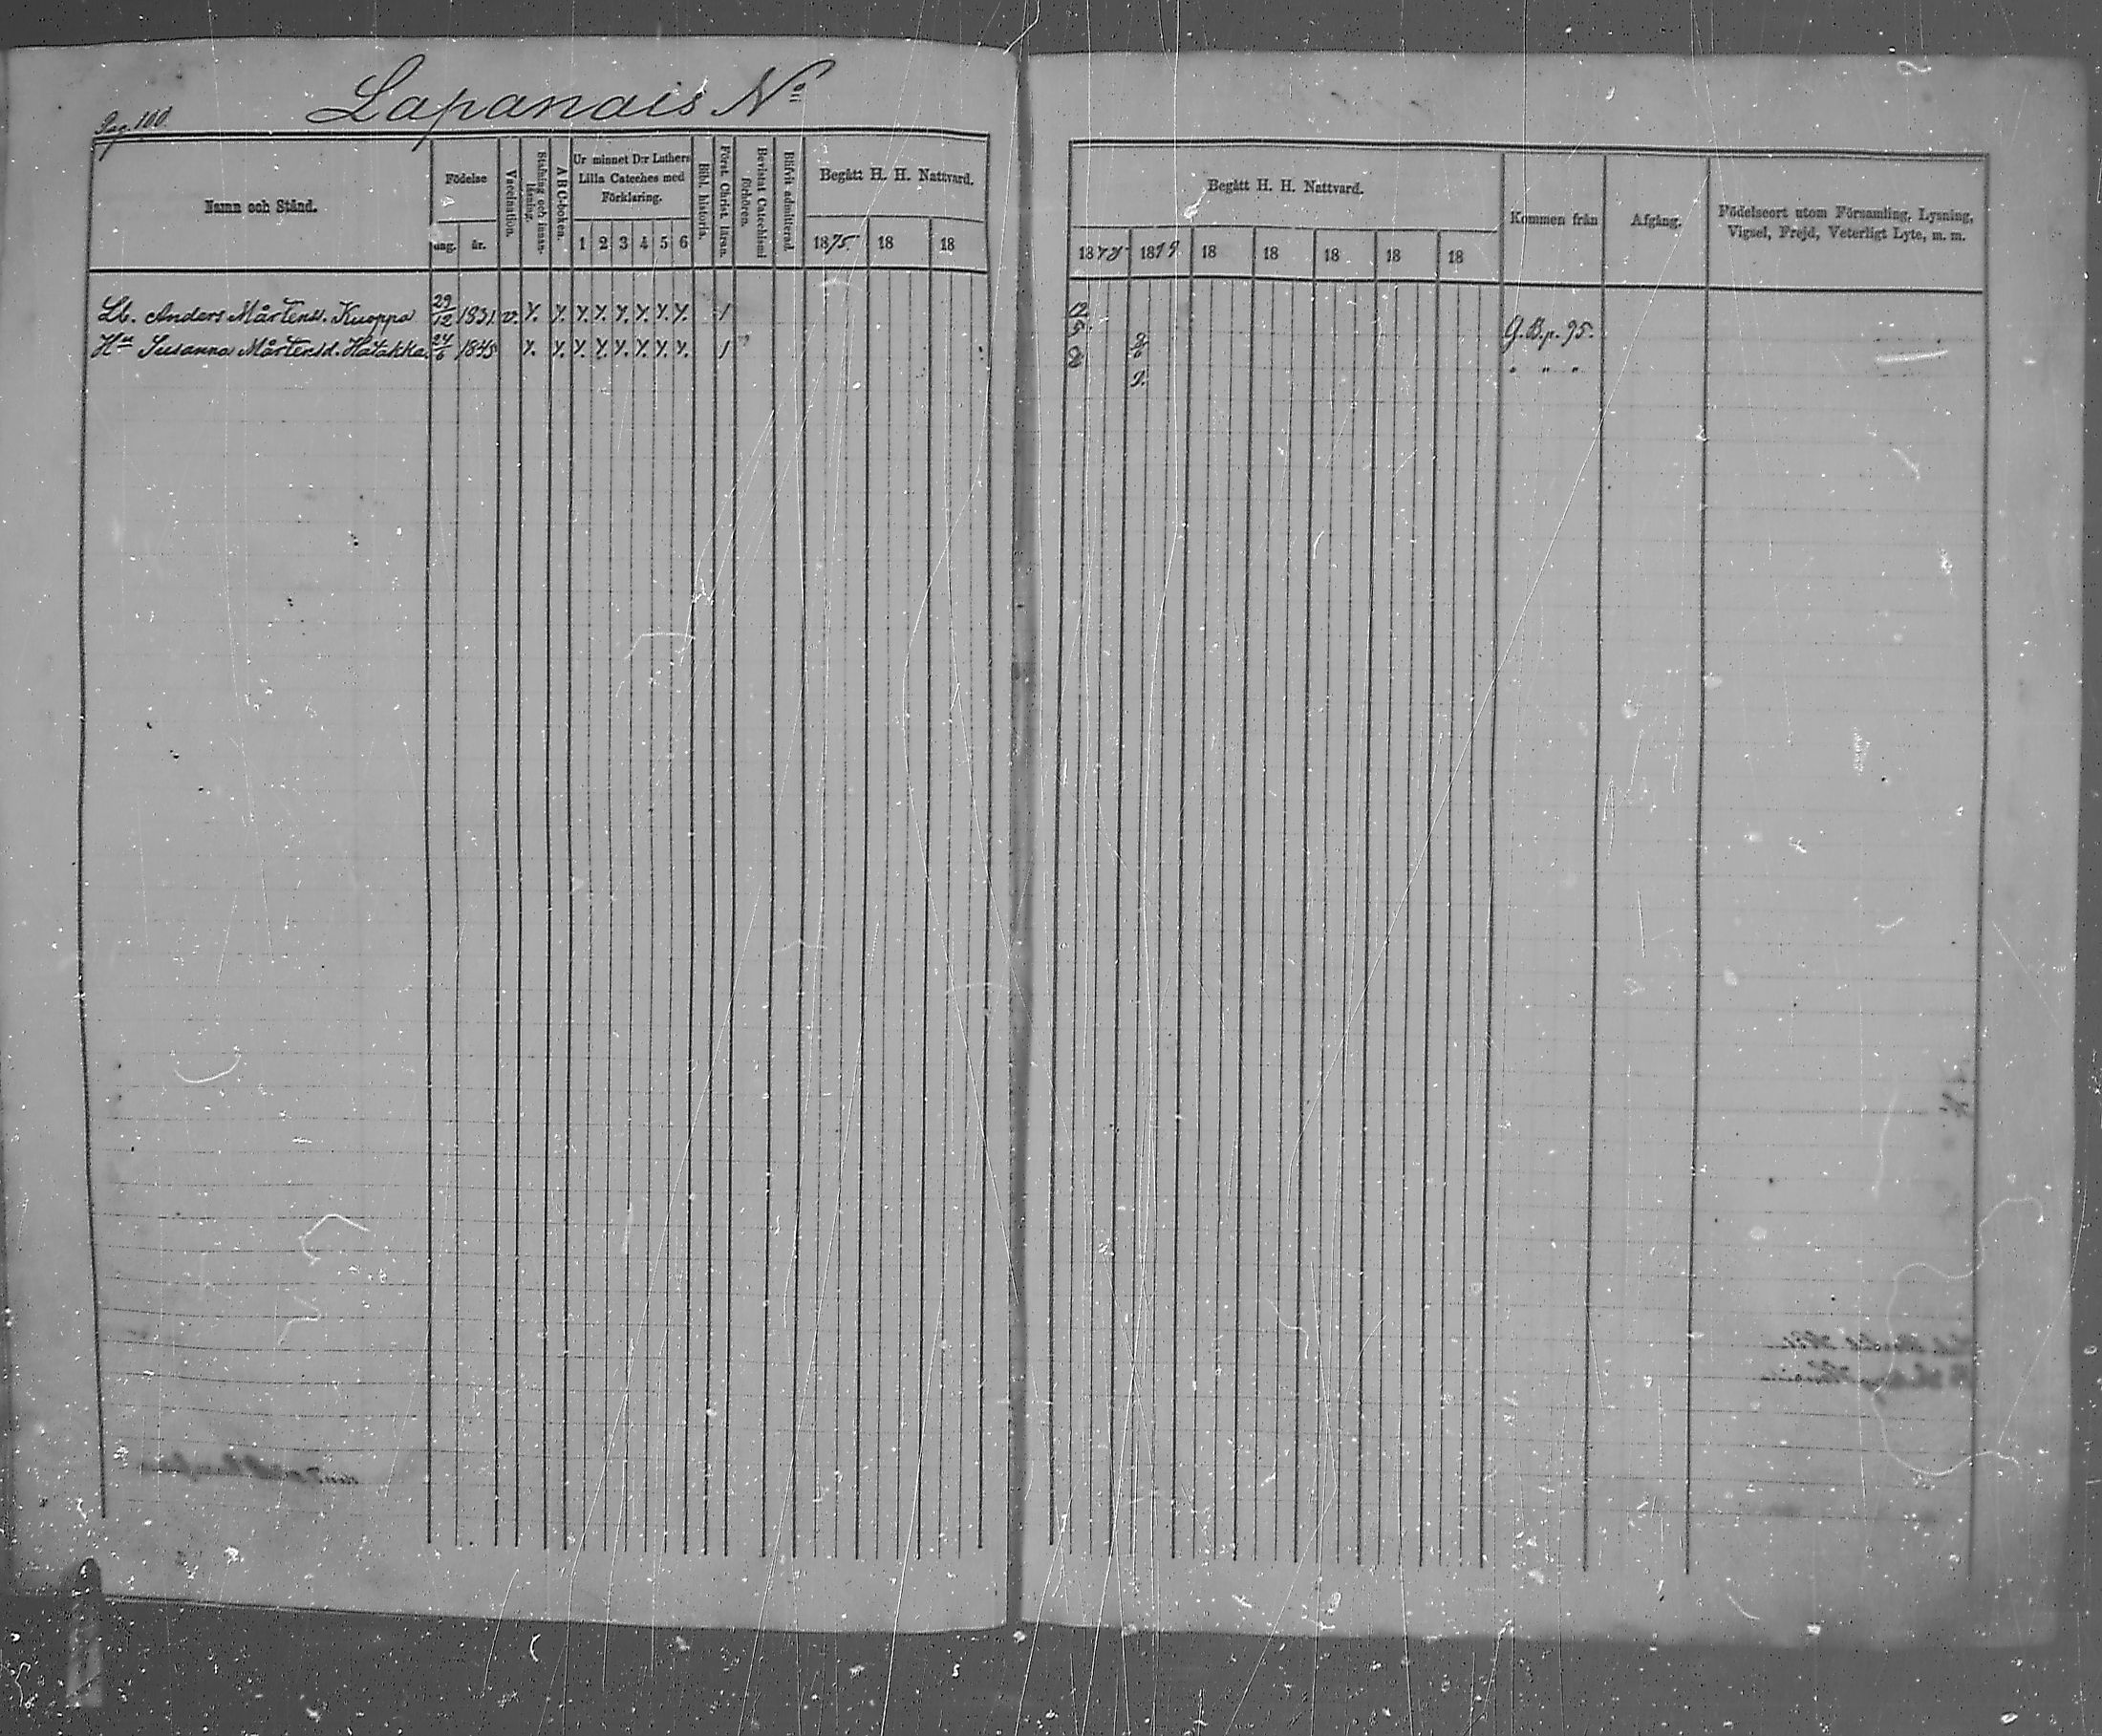 Pag. 100.
Lapanais No
Namn och Stånd.
Födelse
dag.
år.
Vaccination.
Stafning och innan-läsning.
A B C-boken.
Ur minnet D:r Luthers
Lilla Cateches med
Förklaring.
1 2 3 4 5 6
Bibl. historia.
Först. Christ. läran.
Bevistat Catechismi förhören.
Blifvit admitterad.
Begått H. H. Nattvard.
1875. 18 18
Begått H. H. Nattvard.
1878 1879 18 18 18 18 18
Kommen från
Afgång.
Födelseort utom Församling, Lysning,
Vigsel, Frejd, Veterligt Lyte, m. m.
Lb. Anders Mårtenss. Kuoppa 29/12 1831 v. G. B. p. 95.
Hu Susanna Mårtensd. Hätäkkä 24/6 1845 " " "